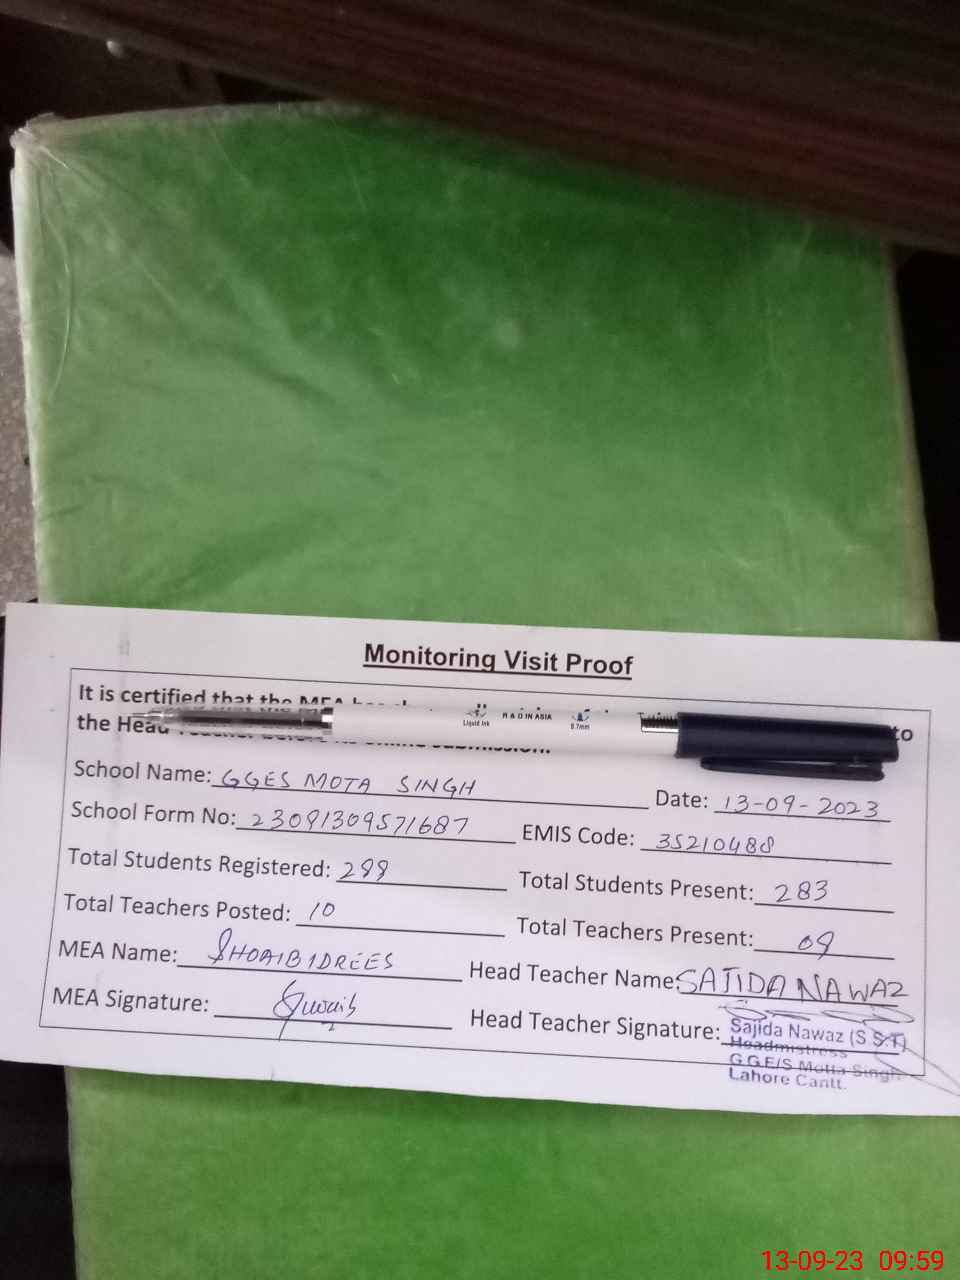 Monitoring Visit Proof
It is certified that the MEA
to
the Head
Liquid Ink R & D IN ASIA 0.7mm
School Name: GGES MOTA SINGH Date: 13-09-2023
School Form No: 23091309571687 EMIS Code: 35210488
Total Students Registered: 299 Total Students Present: 283
Total Teachers Posted: 10 Total Teachers Present: 09
MEA Name: SHOAIB IDREES Head Teacher Name: SAJIDA NAWAZ
MEA Signature: Head Teacher Signature:
Sajida Nawaz (S.S.T)
Headmistress
G.G.E/S Motta Singh
Lahore Cantt.
13-09-23 09:59